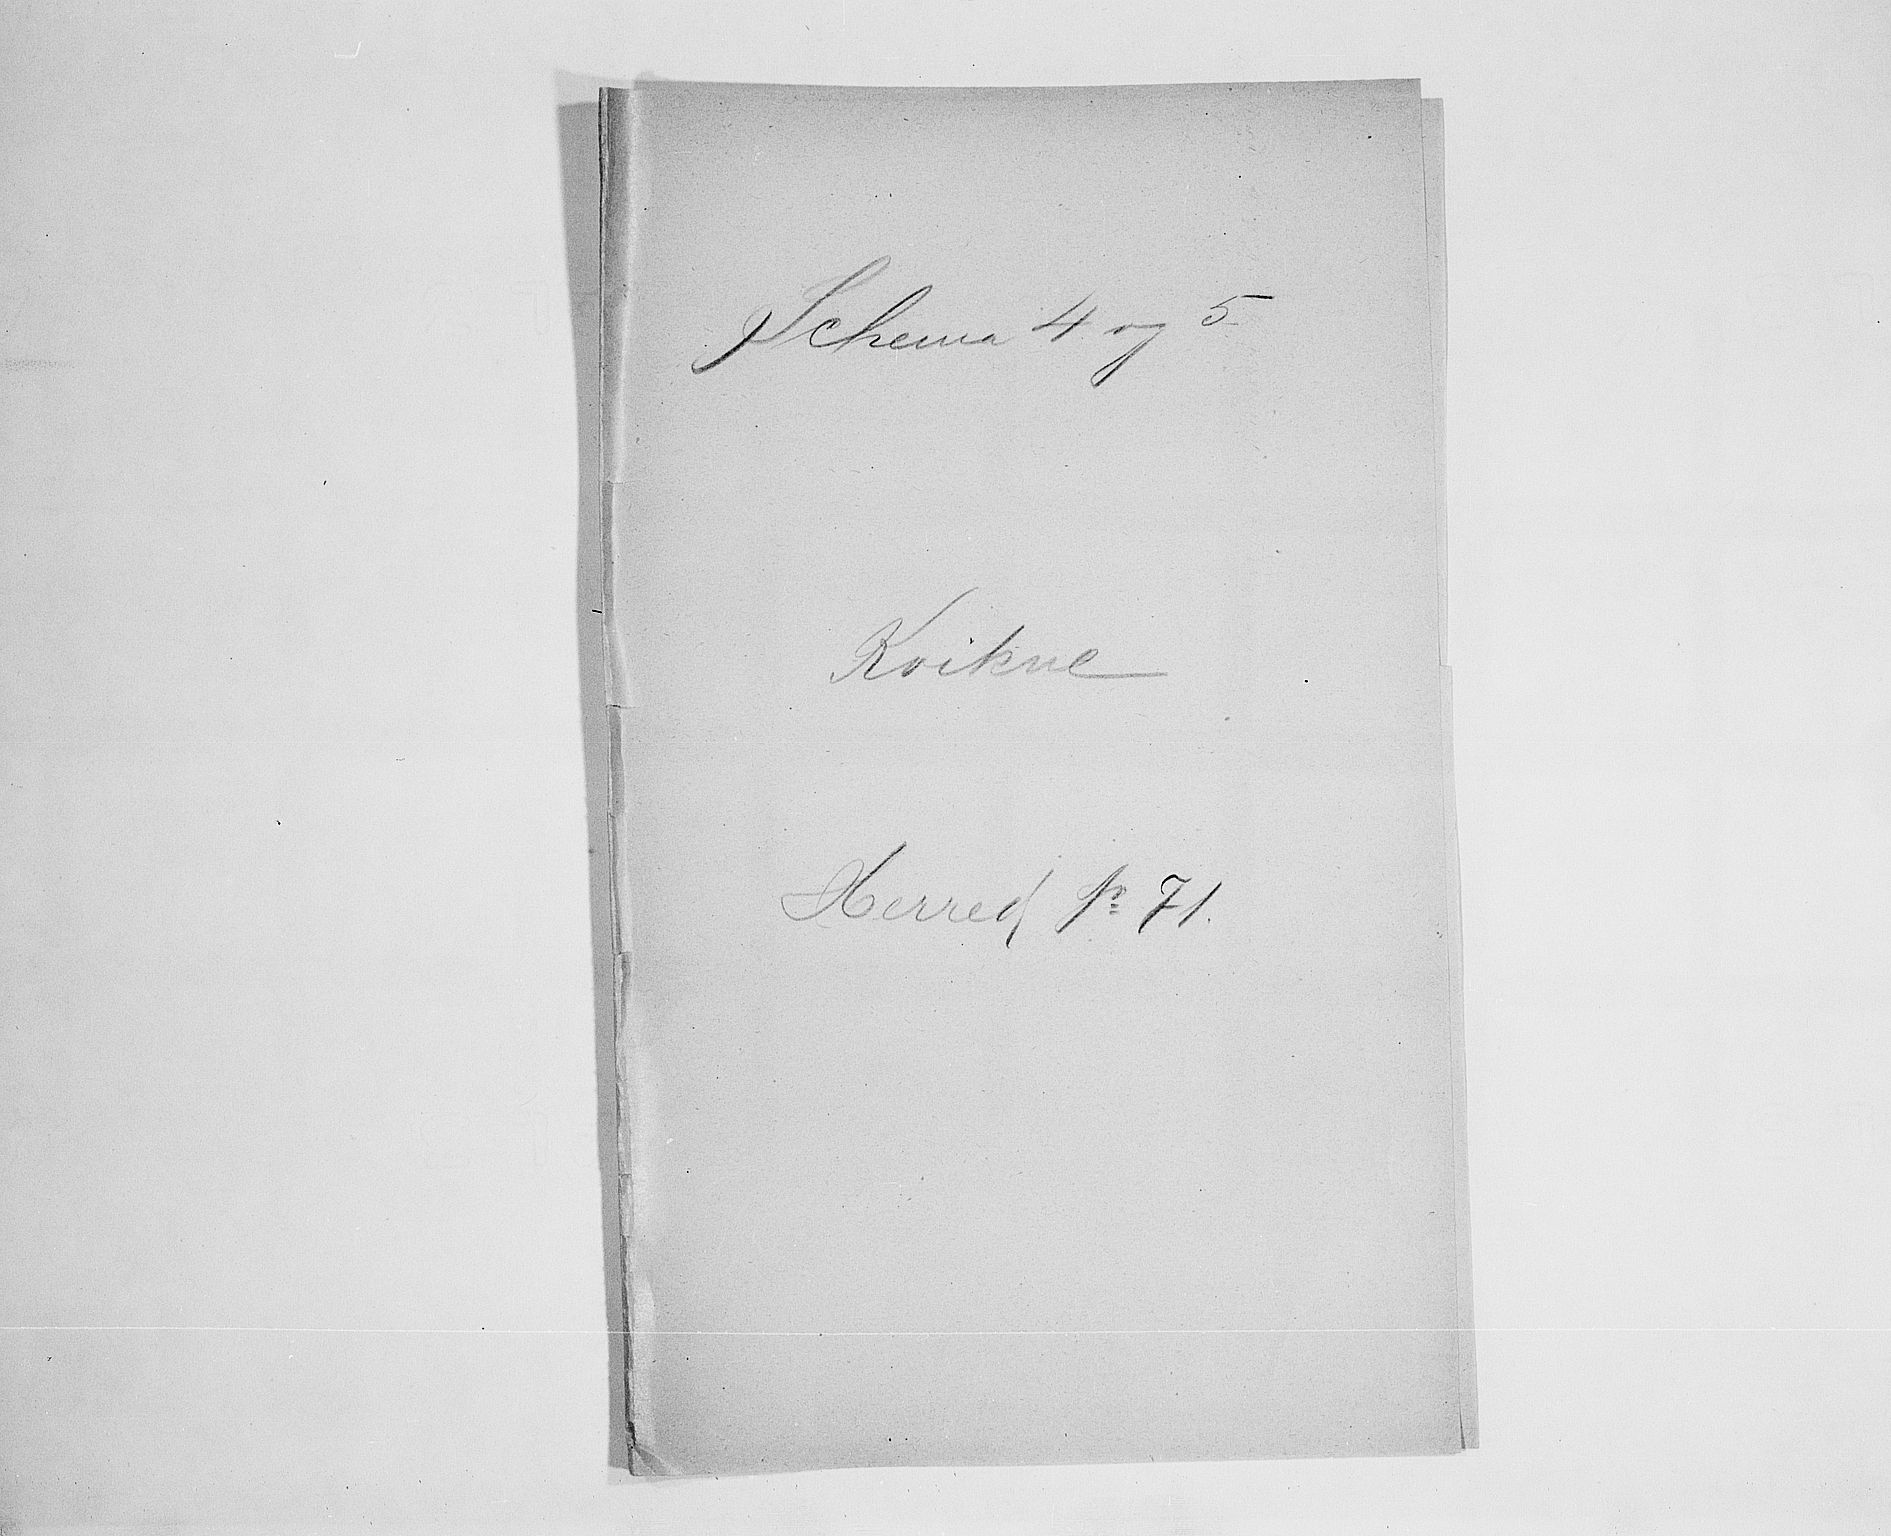 Schema 4 og 5
Kvikne
Herred No 71.